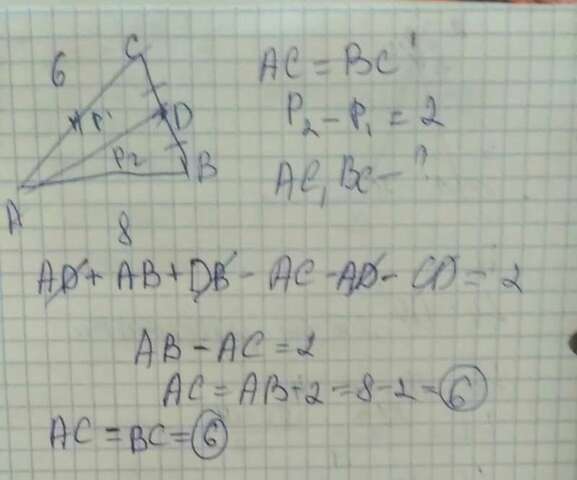 C
6
AC = BC
P₁
D
P₂ - P₁ = 2
P₂
B
AC, BC - ?
A
8
AD + AB + DB - AC - AD - CD = 2
AB - AC = 2
AC = AB - 2 = 8 - 2 = 6
AC = BC = 6